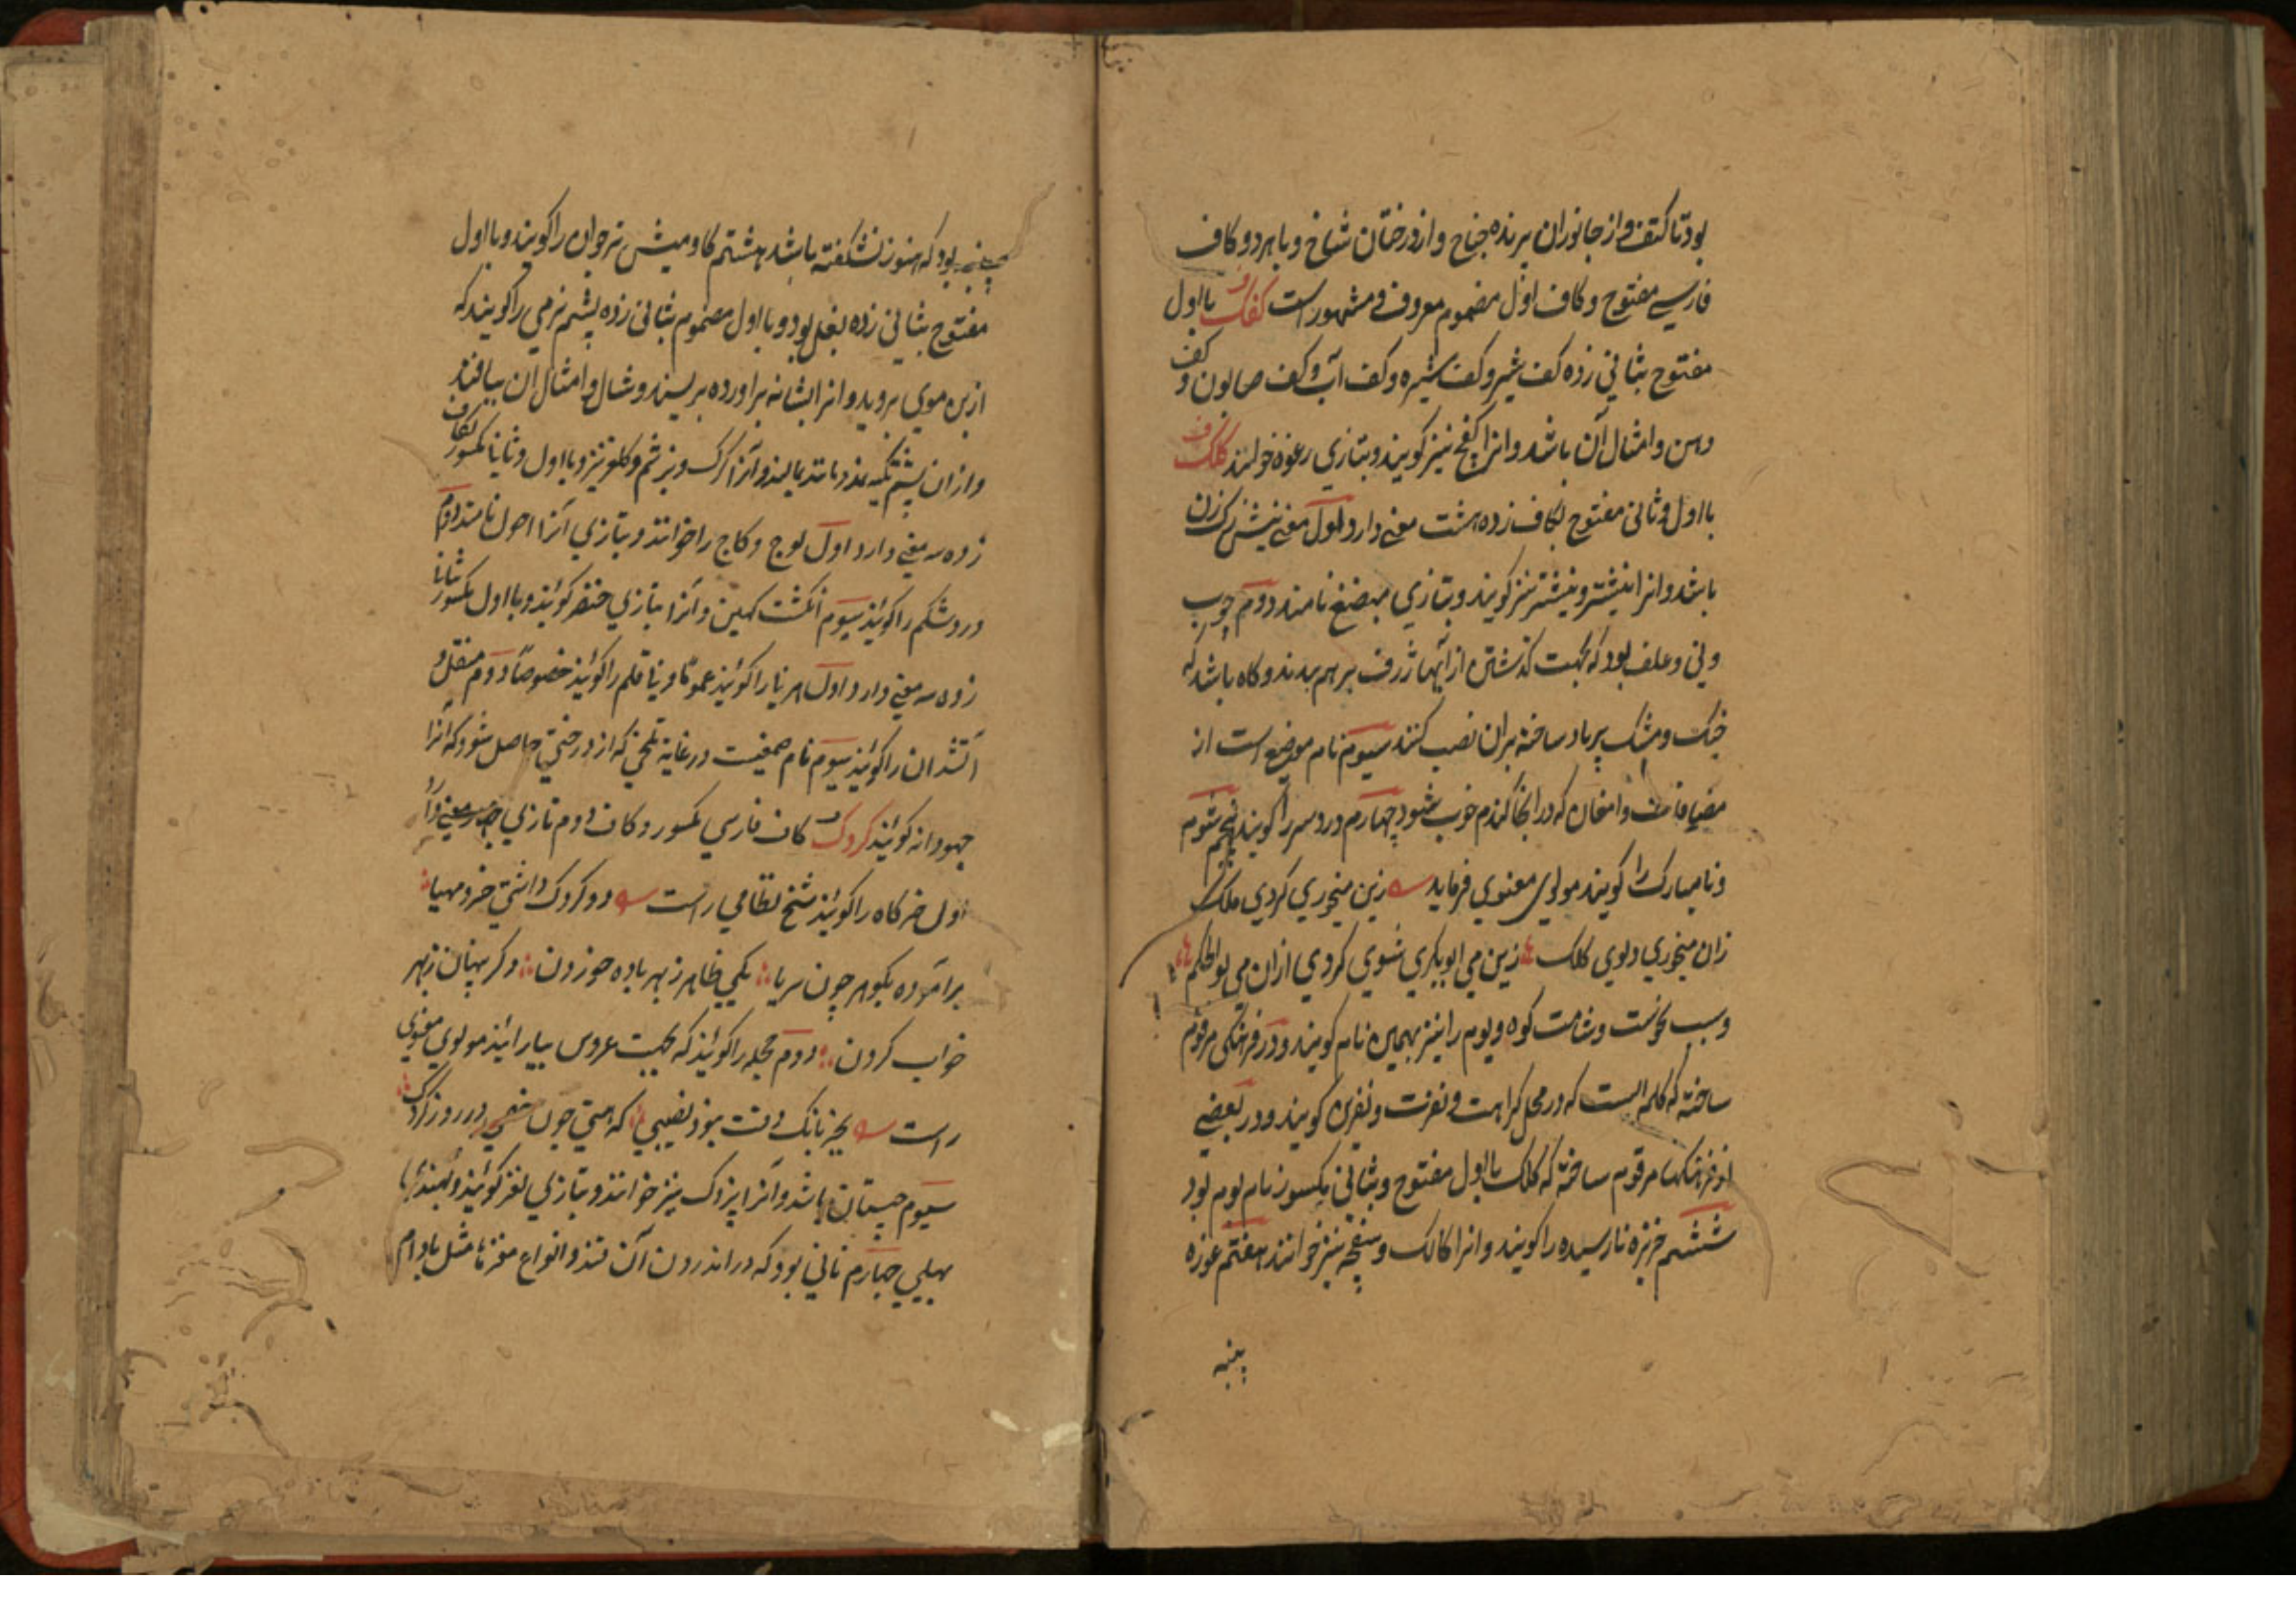 بود تا کتف و از جانوران پرنده جناح و از درختان شاخ و با هر دو کاف
فارسے مفتوح و کاف اول مضموم معروف و مشهور است کفک با اول
مفتوح بثانی زده کف شیر و کف شیره و کف آب و کف صابون و کف
دهن و امثال آن باشد و انرا کفخ نیز گویند و بتازی رغوه خوانند کلک
با اول و ثانی مفتوح بکاف زده هشت معنے دارد اول معنے نیش رک زن
باشد و انرا نیشتر و نیشتر نیز گویند و بتازی مبضع نامند دوم چوب
و نی و علف بود که بجهت گذشتن از آبهاء ژرف بر هم بندند و کاه باشد که
خیک و مشک پر باد ساخته بران نصب کنند سیوم نام موضع است از
مضافات دامغان که در انجا گندم خوب شود چهارم درد سر را گویند پنجم شوم
و نامبارک را گویند مولوی معنوی فرماید زین میخوری کردی ملک
زان میخوری دلوی کلک زین می ابوبکری شوی کردی ازان می بوالحکم
و سبب نحوست و شامت کوه و بوم را نیز بهمین نام گویند و در فرهنگی مرقوم
ساخته که کلمه است که در محل کراهت و نفرت و نفرین گویند و در بعضے
از فرهنکها مرقوم ساخته که کلک با اول مفتوح و بثانی مکسور نام بوم بود
ششم خربزه نارسیده را گویند و انرا کالک و سفچه نیز خوانند هفتم غوزه
پنبه
پنبه بود که هنوز نشکفته باشد هشتم گاومیش نر جوان را گویند و با اول
مفتوح بثانی زده بغل بود و با اول مضموم بثانی زده پشم نرمی را گویند که
از بن موی بروید و انرا بشانه براورده بریسند و شال و امثال ان ببافند
و ازان پشم تکیه نمد و مانند بمالند و آنرا کرک و بز شم و کلغر نیز و با اول و ثانیا مکسور بکاف
زده سه معنے دارد اول لوج و کاج را خوانند و بتازی آنرا احول نامند دوم
درد شکم را کویند سیوم انکشت کهین و آنرا بتازی خنصر کویند و با اول مکسور بثانی
زده سه معنے دارد اول هر نیا را کویند عموماً و نیا قلم را کویند خصوصاً دوم منقل و
آتشدان را کویند سیوم نام صمغیست در غایة تلخی که از درختی حاصل شود که آنرا
جهودانه کویند کردک کاف فارسی مکسور و کاف دوم تازی چهار معنے دارد
اول خرگاه را کویند شیخ نظامی راست دو کردک داشتی خرو مهیا
برآموده بکوهر چون سریا یکی ظاهر ز بهر باده خوردن دکر پنهان ز بهر
خواب کردن دوم حجله را کویند که بجهت عروس بیارایند مولوی معنوی
راست بجز بانک دفت نبود نصیبی که هستی چون خصی در روز کردک
سیوم چیستان باشد و آنرا پردک نیز خوانند و بتازی لغز کویند و بهندی
پهیلی چهارم نانی بود که در اندرون آن قند و انواع مغزها مثل بادام